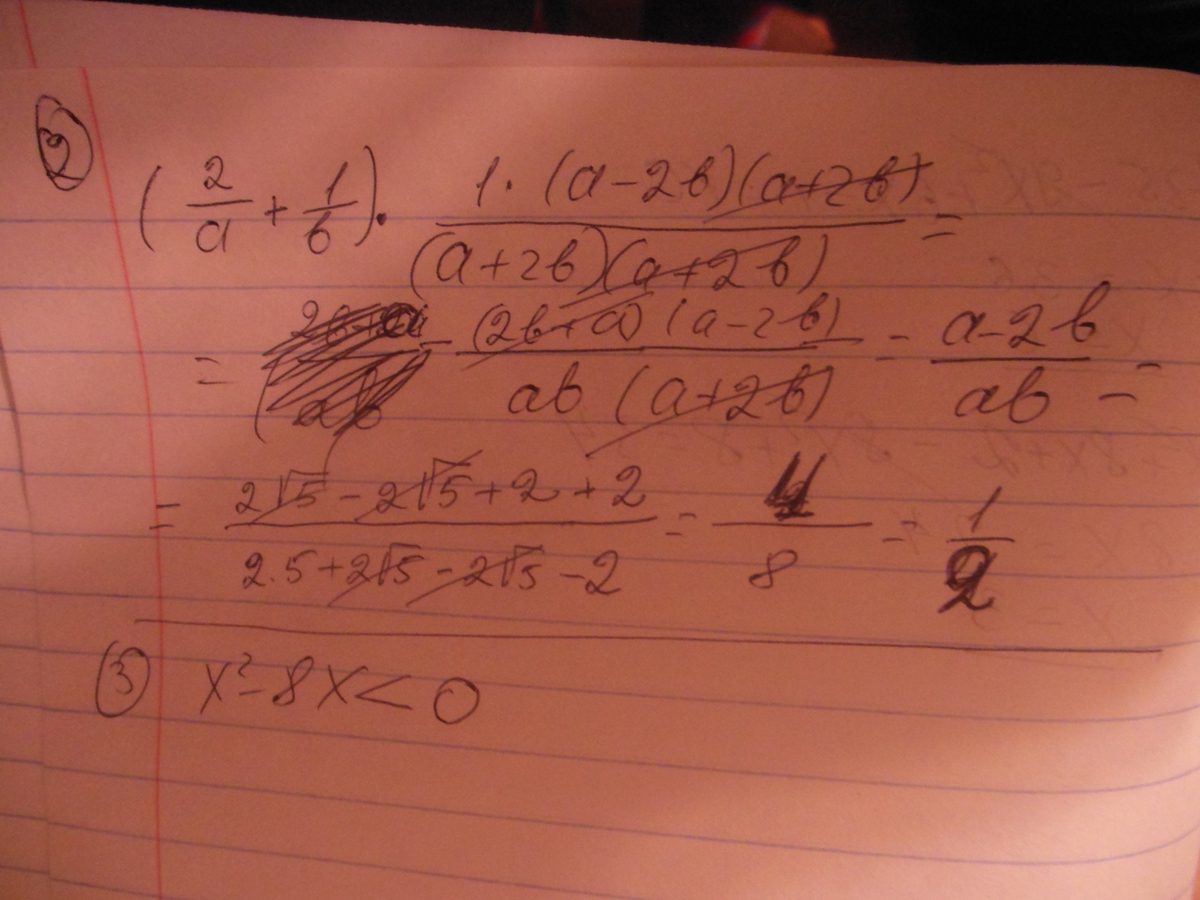 ②
(2/a + 1/b) · 1·(a-2b)(a+2b) / (a+2b)(a+2b) =
= (2b+a)(a-2b) / ab(a+2b) = a-2b / ab =
= 2√5 - 2√5 + 2 + 2 / 2·5 + 2√5 - 2√5 - 2 = 4/8 = 1/2
③ x² - 8x < 0